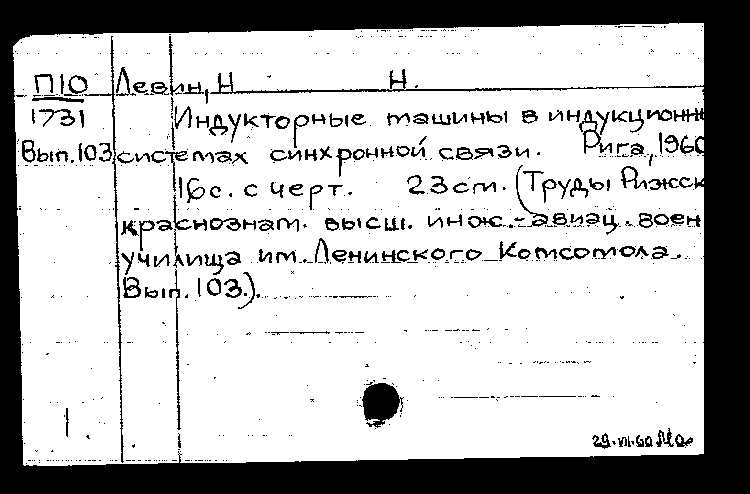 П10 Левин, Н Н.
1731 Индукторные машины в индукционн
Вып.103 системах синхронной связи. Рига, 1960
16с. с черт. 23cm. (Труды Рижск
краснознам. высш. инж.-авиац. воен
училища им. Ленинского Комсомола.
Вып. 103.).